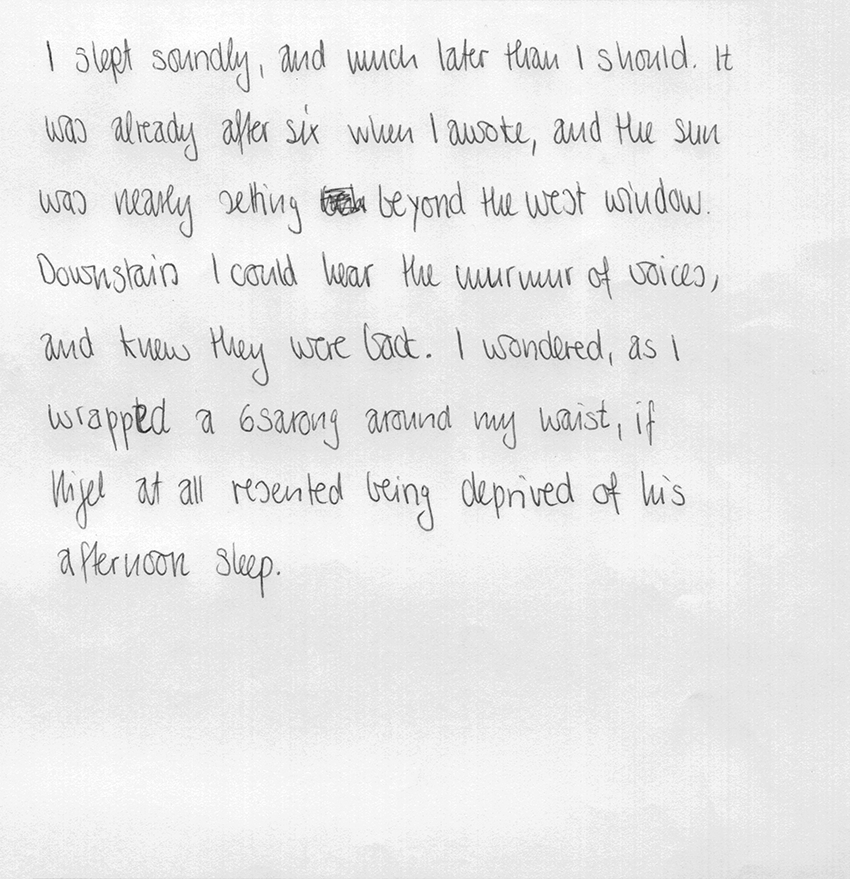 I slept soundly, and much later than I should. It
was already after six when I awoke, and the sun
was nearly setting beyond the west window.
Downstairs I could hear the murmur of voices,
and knew they were back. I wondered, as I
wrapped a sarong around my waist, if
Nigel at all resented being deprived of his
afternoon sleep.